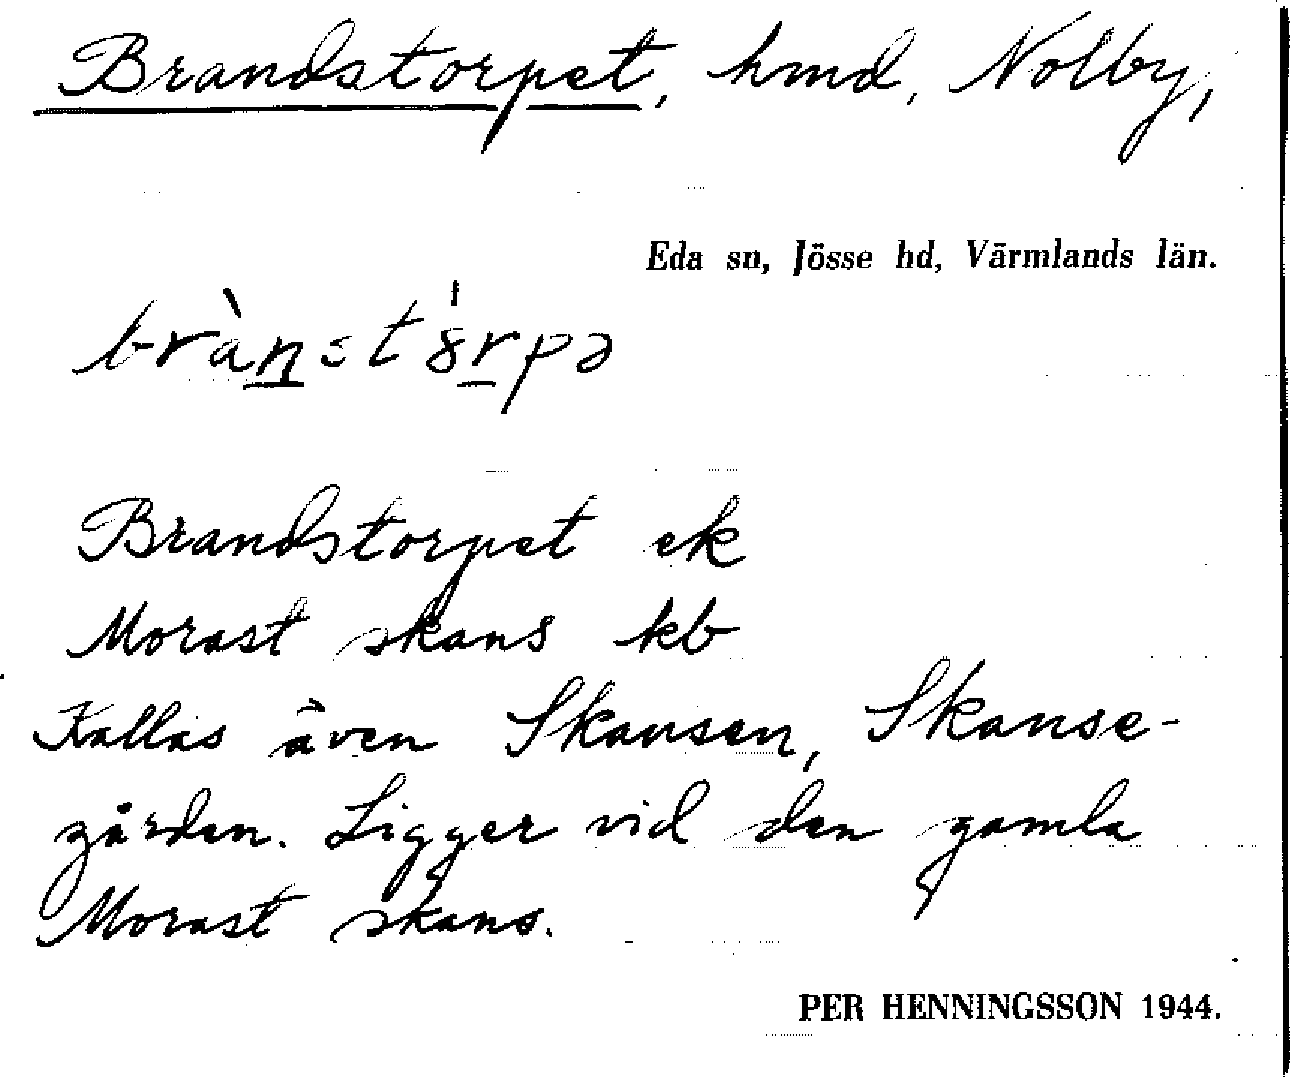 Brandstorpet, hmd, Nolby,
Eda sn, Jösse hd, Värmlands län.
brànstȣ́rpə
Brandstorpet ek
Morast skans kb
Kallas även Skansen, Skanse-
gården. Ligger vid den gamla
Morast skans.
PER HENNINGSSON 1944.